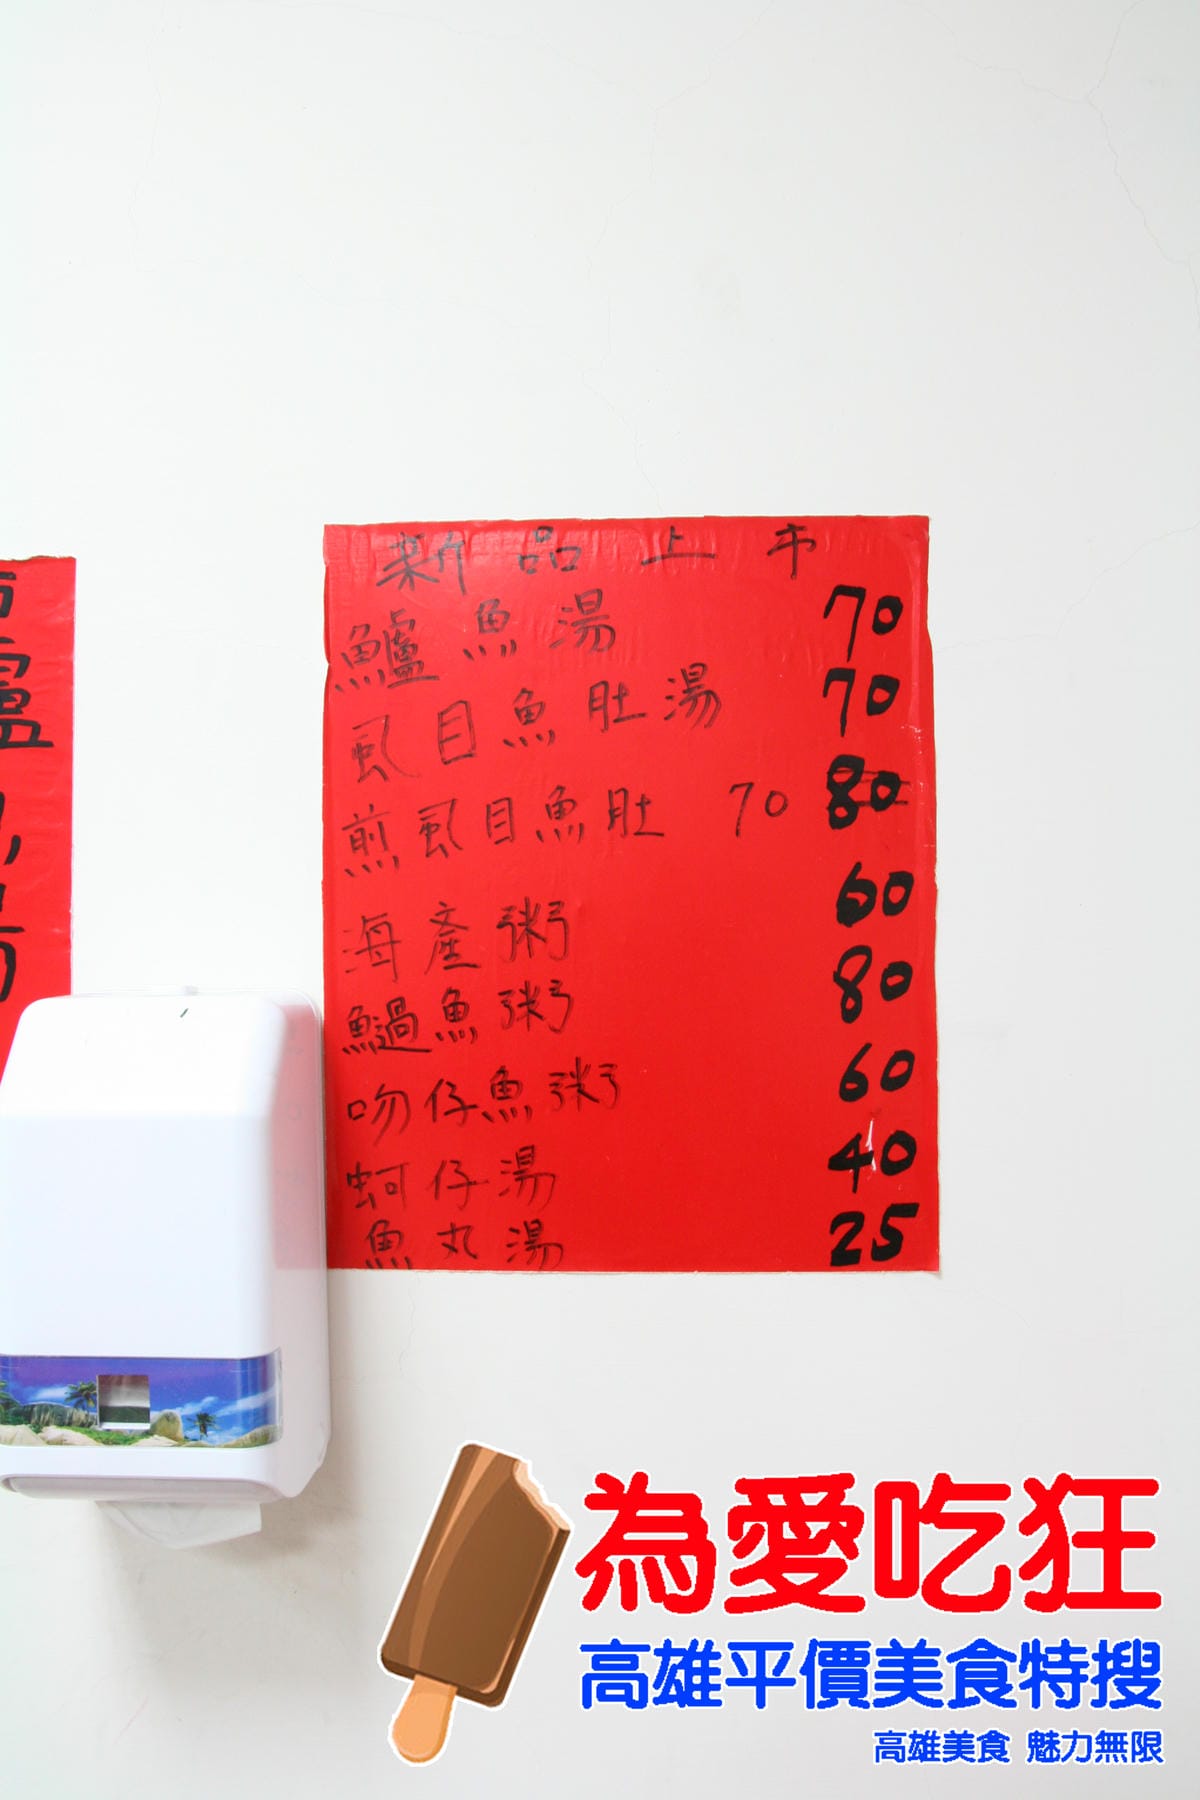 新品上市
鱸魚湯 70
虱目魚肚湯 70
煎虱目魚肚 70 80
海產粥 60
魚過魚粥 80
吻仔魚粥 60
蚵仔湯 40
魚丸湯 25
為愛吃狂
高雄平價美食特搜
高雄美食 魅力無限